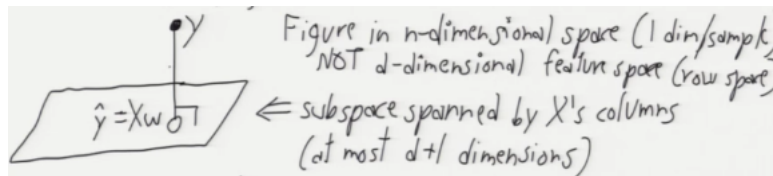 y
Figure in n-dimensional space (1 dim/sample)
NOT d-dimensional feature space (row space)
ŷ = Xw
⇐ subspace spanned by X's columns
(at most d+1 dimensions)